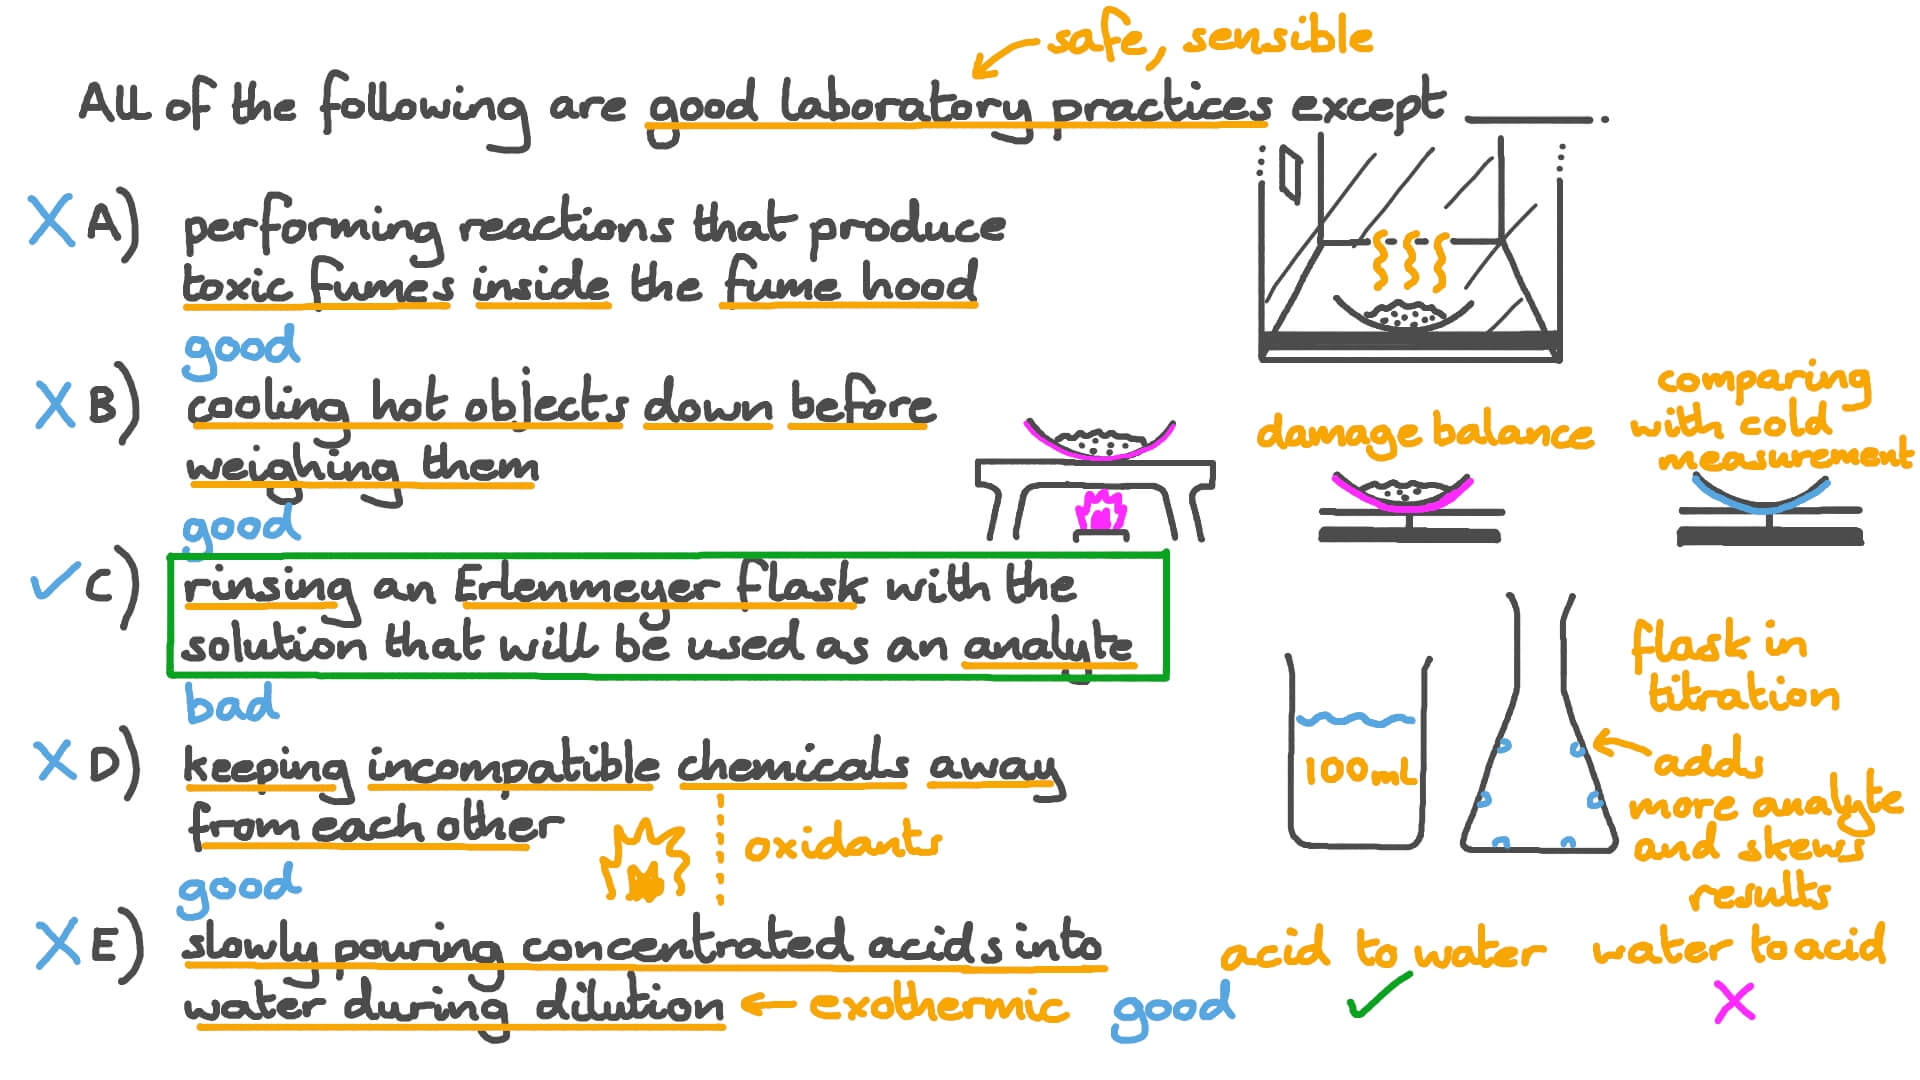 safe, sensible
All of the following are good laboratory practices except ______.
A) performing reactions that produce
toxic fumes inside the fume hood
good
B) cooling hot objects down before
weighing them
good
damage balance
comparing
with cold
measurement
C) rinsing an Erlenmeyer flask with the
solution that will be used as an analyte
bad
100mL
flask in
titration
adds
more analyte
and skews
results
D) keeping incompatible chemicals away
from each other
oxidants
good
E) slowly pouring concentrated acids into
water during dilution
exothermic
good
acid to water
water to acid